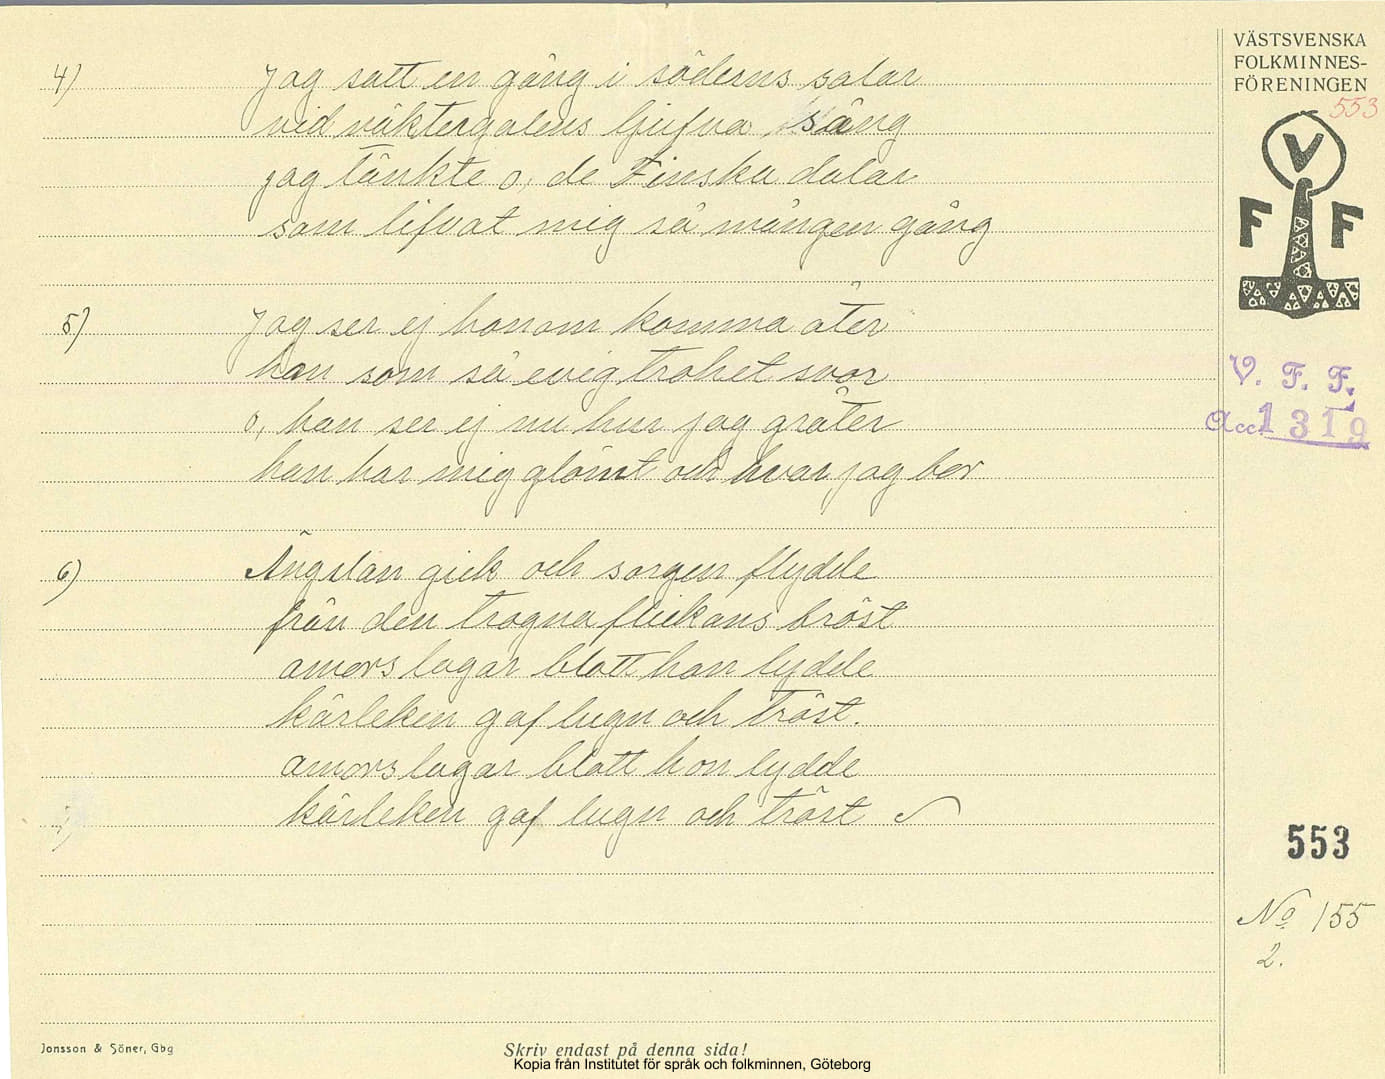 VÄSTSVENSKA
FOLKMINNES-
FÖRENINGEN
553
V
F F
V. F. F.
Acc. 1319
4) Jag satt en gång i söderns salar
vid näktergalens ljufva sång
jag tänkte o, de Finska dalar
som lifvat mig så mången gång
5) Jag ser ej honom komma åter
han som så evig trohet svor
o, han ser ej nu hur jag gråter
han har mig glömt och hvar jag bor
6) Ängslan gick och sorgen flydde
från den trogna flickans bröst
amors lagar blott hon lydde
kärleken gaf lugn och tröst.
amors lagar blott hon lydde
kärleken gaf lugn och tröst
553
No 155
2.
Jonsson & Söner, Gbg
Skriv endast på denna sida!
Kopia från Institutet för språk och folkminnen, Göteborg